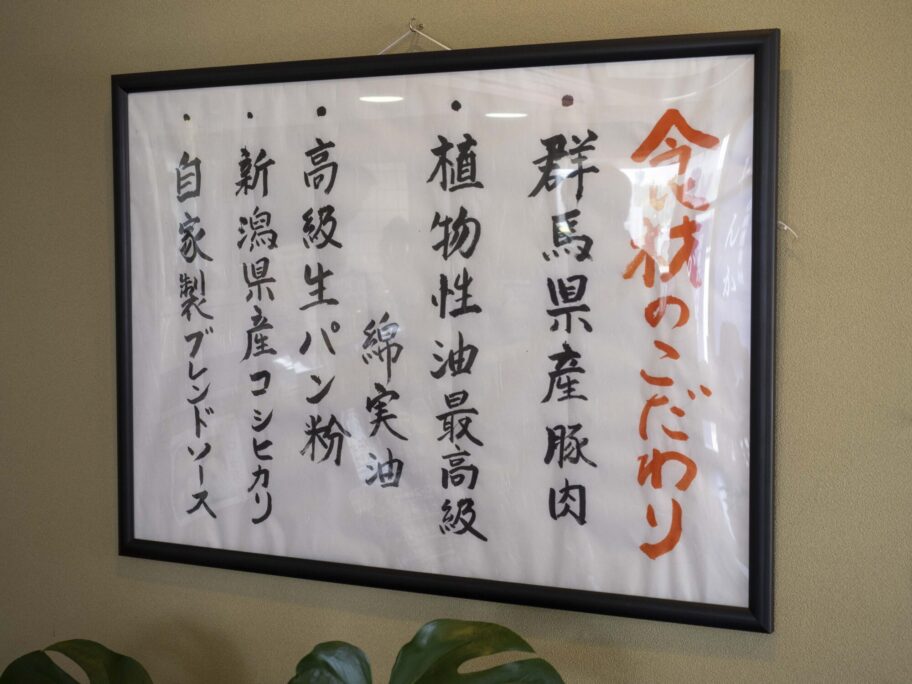 食材のこだわり
・群馬県産豚肉
・植物性油最高級
綿実油
・高級生パン粉
・新潟県産コシヒカリ
・自家製ブレンドソース